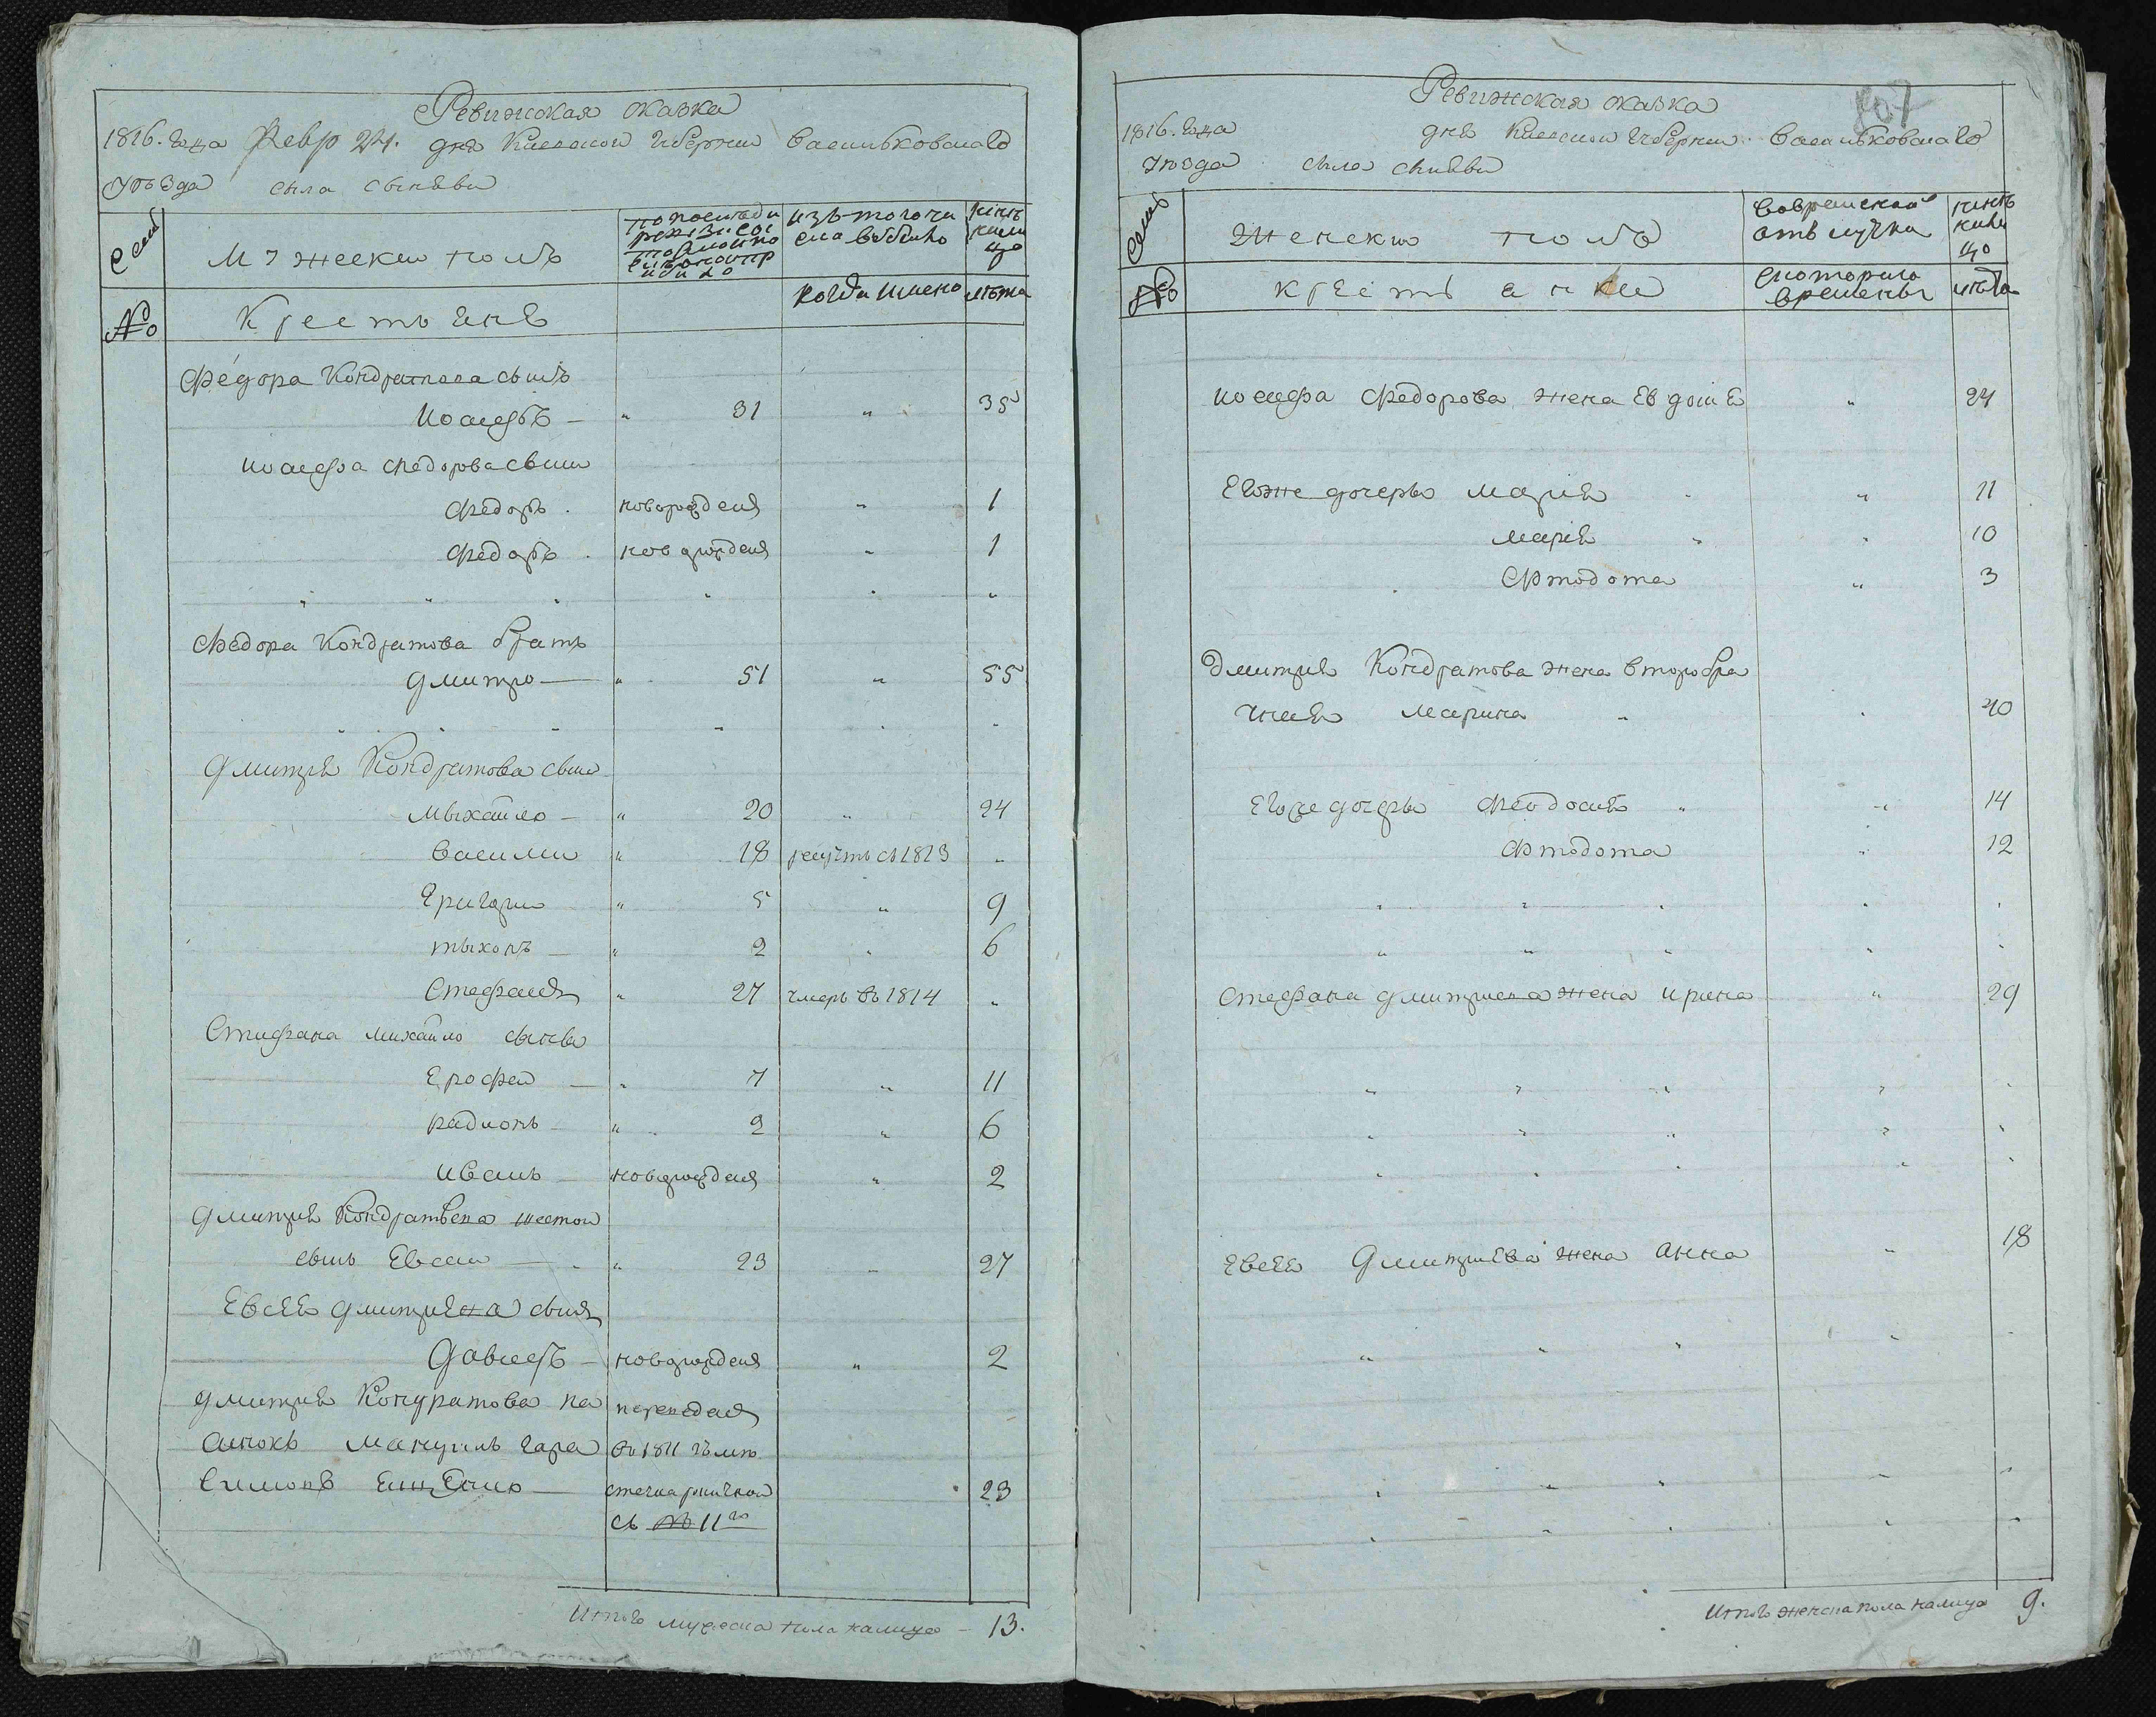 Ревижская сказка
1816. года Февр 24. дня Киевской Губернии Васильковскаго
Уезда села Синявы
Семьи
Мужеский полъ
по последней ревизии состояло и после оной прибыло
изъ того числа выбыло
ныне налицо
№
Крестьяне
когда именно
лета
Федора Кондратова сынъ
Иосифъ — " 31 " 35
Иосифа Федорова сыны
Федоръ . новорожденъ " 1
Федоръ . новорожденъ " 1
Федора Кондратова братъ
Дмитро — " 51 " 55
Дмитрия Кондратова сыны
Мыхайло — " 20 " 24
Василий " 18 рекрутъ въ 1813 "
Григорий — " 5 " 9
Тыхонъ — " 2 " 6
Стефанъ " 27 умеръ въ 1814 "
Стифана Михайло сыны
Ерофей — " 7 " 11
Радионъ — " 2 " 6
Иванъ — новорожденъ " 2
Дмитрия Кондратьева шестой
сынъ Евсей — " 23 " 27
Евсея Дмитриева сынъ
Давидъ — новорожденъ " 2
Дмитрия Кондратова па
сынокъ Мануилъ Гара
въ 1811
Симонъ — 23
съ № 11го
Итого мужеска пола налицо — 13.
Ревижская сказка
807
1816. года дня Киевской Губернии Васильковскаго
уезда села Синявы
Семьи
Женский полъ
Во временной отлучке
ныне налицо
№
крестьянки
с котораго времены
лета
Иосифа Федорова жена Евдокия " 24
Егоже дочеры Мария " 11
Мария " " 10
Фтодота " 3
Дмитрия Кондратова жена второбра
чная Марина " 40
Егоже дочеры Феодосия " " 14
Фтодота " 12
Стефана Дмитриева жена Ирина " 29
Евсея Дмитриева жена Анна " 18
Итого женска пола налицо 9.